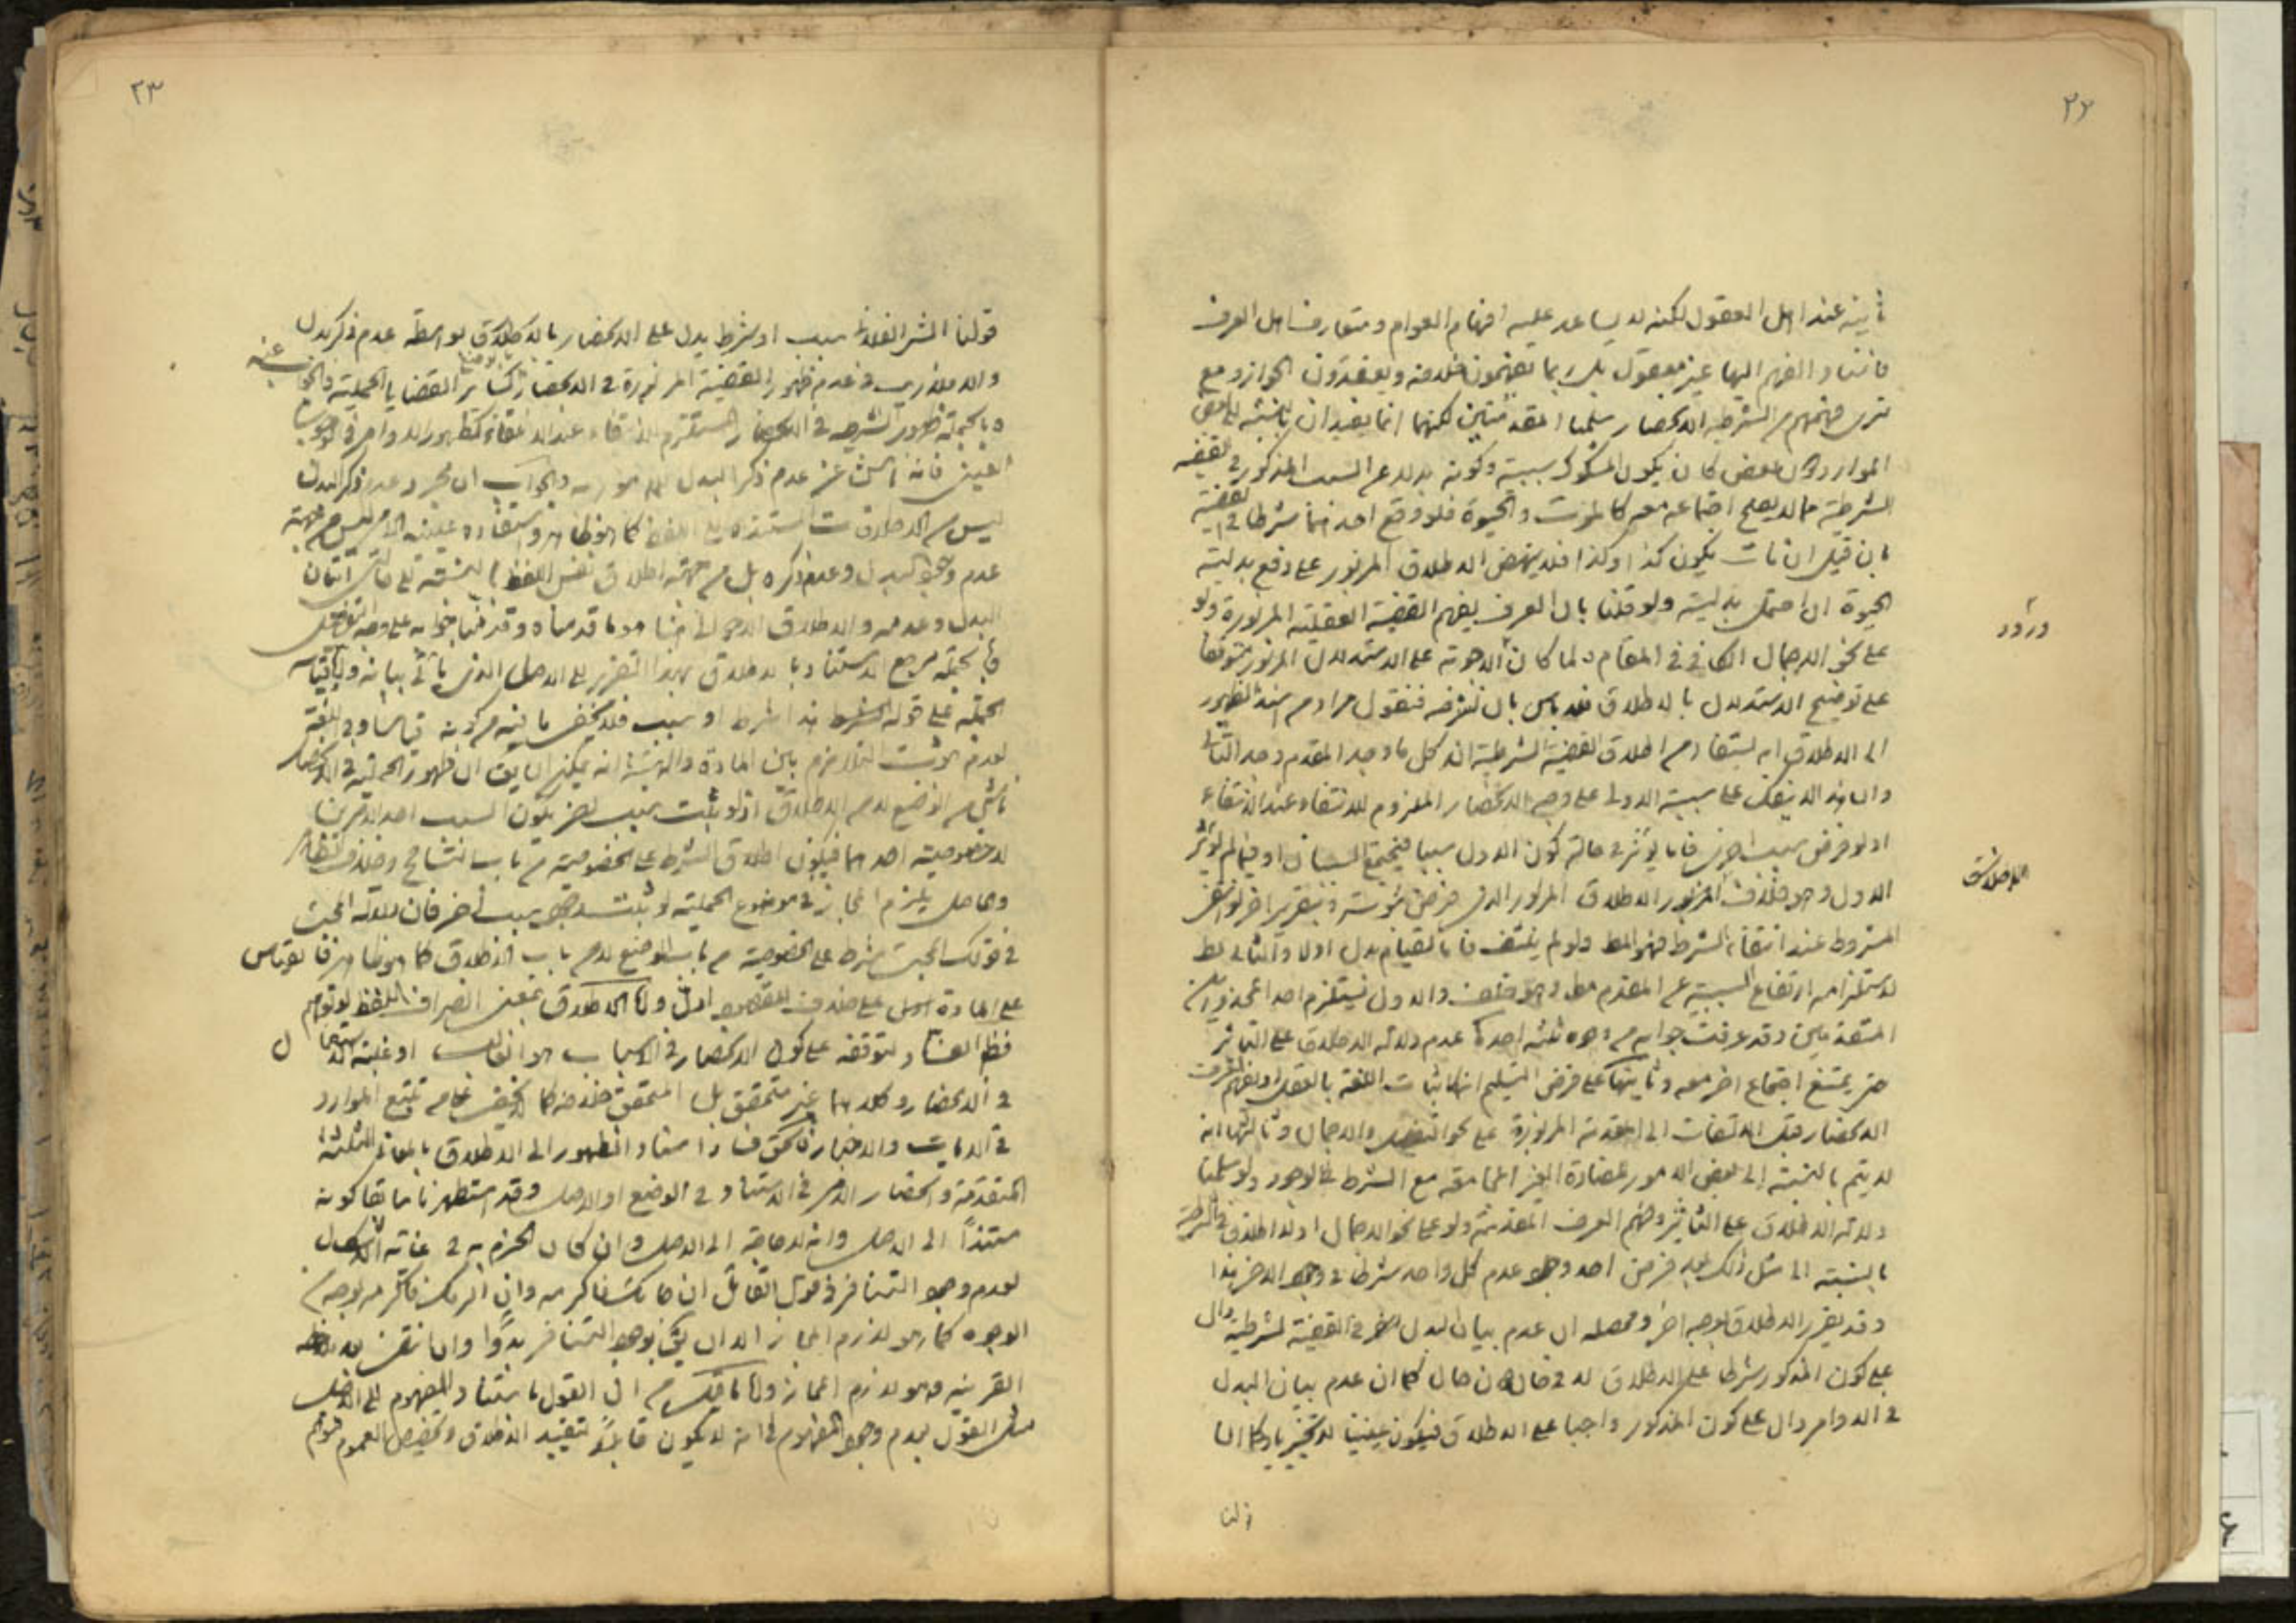 ٢٢
ثابتة عند اهل العقول لكنه لا يساعد عليه افهام العوام ومتعارف اهل العرف
فاسناد الفهم اليها غير معقول بل ربما يفهمون خلافه ويعتقدون الجواز ومع
نرى فهمهم من الشرطية الانحصار سلمنا المقدمتين لكنهما انما يفيدان بالنسبة الى بعض
الموارد دون بعض كان يكون المشكوك سببيته وكونه بدلا عن السبب المذكور في القضية
الشرطية مما لا يصح اجتماعه معه كالموت والحيوة فلو وقع احدهما شرطا في القضية
بان قيل ان مات يكون كذا وكذا فلا ينهض الاطلاق المزبور على دفع بدلية
الحيوة ان احتمل بدليته ولو قلنا بان العرف يفهم القضية العقلية المزبورة ولو
على نحو الاجمال الكافي في المقام ولما كان الاجوبة على الاستدلال المزبور متوقفا
على توضيح الاستدلال بالاطلاق فلا باس بان نشرحه فنقول مراد من اسند الظهور
الى الاطلاق انه يستفاد من اطلاق القضية الشرطية انه كل ما وجد المقدم وجد التالي
وان هذا لا ينفك على سببية الاولى على وجه الانحصار الملزوم للانتفاء عند الانتفاء
اذ لو فرض سبب اخر فاما يؤثر في حالة كون الاول سببا فيجتمع السببان او فيما لم يؤثر
الاول وهو خلاف المزبور الاطلاق المزبور الذي فرض ثبوته وبتقرير اخر لو انتفى
المشروط عند انتفاء الشرط فهو المط ولو لم ينتف فاما لقيام بدل اولا والثاني بط
لاستلزامه ارتفاع السببية عن المقدم مط وهو خلف والاول يستلزم احد المحذورين
المتقدمين وقد عرفت جوابه من وجوه ثلثة احدها عدم دلالة الاطلاق على التاثير
حتى يمتنع اجتماع اخر معه وثانيها على فرض التسليم انه اثبات اللغة بالعقل
الانحصار قبل الالتفات الى المقدمة المزبورة على نحو التفصيل والاجمال وثالثها انه
لا يتم بالنسبة الى بعض الامور المضادة الغير المجامعة مع الشرط في الوجود ولو سلمنا
دلالة الاطلاق على التاثير وفهم العرف المقدمة ولو على نحو الاجمال اذ لا اطلاق في الشرطية
بالنسبة الى مثل ذلك بعد فرض احد وجود عدم كل واحد شرطا في وجود الاخر هذا
وقد يقرر الاطلاق بوجه اخر ومحصله ان عدم بيان البدل اخر في القضية الشرطية دال
على كون المذكور شرطا على الاطلاق لا في حال دون حال كما ان عدم بيان البدل
في الاوامر دال على كون المذكور واجبا على الاطلاق فيكون عينيا لا تخييريا وكما ان
قولنا
٢٣
قولنا الشئ الفلاني سبب او شرط يدل على الانحصار بالاطلاق بواسطة عدم ذكر بدل
والا فلا ريب في عدم ظهور القضية المزبورة في الانحصار كسائر القضايا الحملية
وبالجملة ظهور الشرطية في الانحصار المستلزم للانتفاء عند الانتفاء كظهور الاوامر في الوجوب
العيني فانه ناش عن عدم ذكر البدل والجواب ان مجرد عدم ذكر البدل
ليس من الاطلاقات المستندة الى اللفظ كما هو ظاهر واستفادة عينية الامر ليس من جهة
عدم وجود البدل وعدم ذكره بل من جهة اطلاق نفس اللفظ بالنسبة الى حالتي اتيان
البدل وعدمه والاطلاق الاحوالي هنا هو ما قدمناه وقد عرفت جوابه على وجه التفصيل
وبالجملة مرجع الاستناد بالاطلاق بهذا التقرير الى الاصل الذي ياتي بيانه
الجملة على قوله الشرط هذا شرط او سبب فلا يخفى ما فيه من كونه قياسا في اللغة
لعدم ثبوت التلازم بين المادة والهيئة انه يمكن ان يق ان ظهور الحملية في الانحصار
ناش من الوضع لا من الاطلاق اذ لو ثبت سبب اخر يكون السبب احد الامرين
لا خصوصية احدهما فيكون اطلاق الشرط على الخصوصية من باب التسامح وخلاف الظاهر
والحاصل يلزم المجاز في موضوع الحملية لو ثبت وجود سبب اخر فان دلالة المجئ
في قولك المجئ شرط على الخصوصية من باب الوضع لا من باب الاطلاق كما هو ظاهر فالقياس
على المادة على خلاف المقصود ادل واما الاطلاق بمعنى انصراف اللفظ
فظ الفساد لتوقفه على كون الانحصار في الاسباب هو الغالب او غلبة الاستعمال
في الانحصار وكلاهما غير متحقق بل المتحقق خلافه كما لا يخفى على من تتبع الموارد
في الايات والاخبار فالحق فساد اسناد الظهور الى الاطلاق بالمعاني الثلثة
المتقدمة وانحصار الامر في الاستناد في الوضع او الاصل وقد استظهرنا سابقا كونه
مستندا الى الاصل وانه لا حاجة الى الاصل وان كان الجزم به في غاية الاشكال
لعدم وجود التنافر في قول القائل ان جائك فاكرمه وان اكرمك فاكرمه بوجه من
الوجوه كما هو لازم المجاز الا ان يق بوجود التنافر بدوا
القرينة وهو لازم المجاز واما ما قيل من ان القول باستناد المفهوم الى الاصل
مثل القول بعدم وجود المفهوم في انه لا يكون قابلا لتقييد الاطلاق وتخصيص العموم